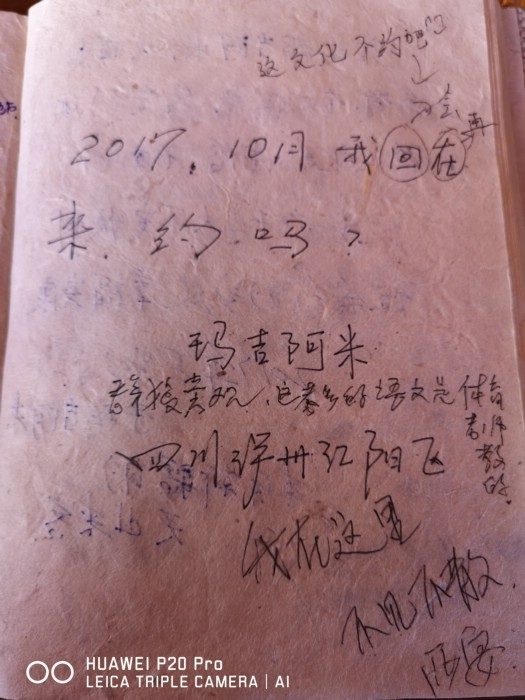 这文化不约吧
会 再
2017.10月 我回在
来.约吗?
玛吉阿米
语文是体育老师教的.
四川泸州江阳区
我在这里
不见不散.
西安
HUAWEI P20 Pro
LEICA TRIPLE CAMERA | AI